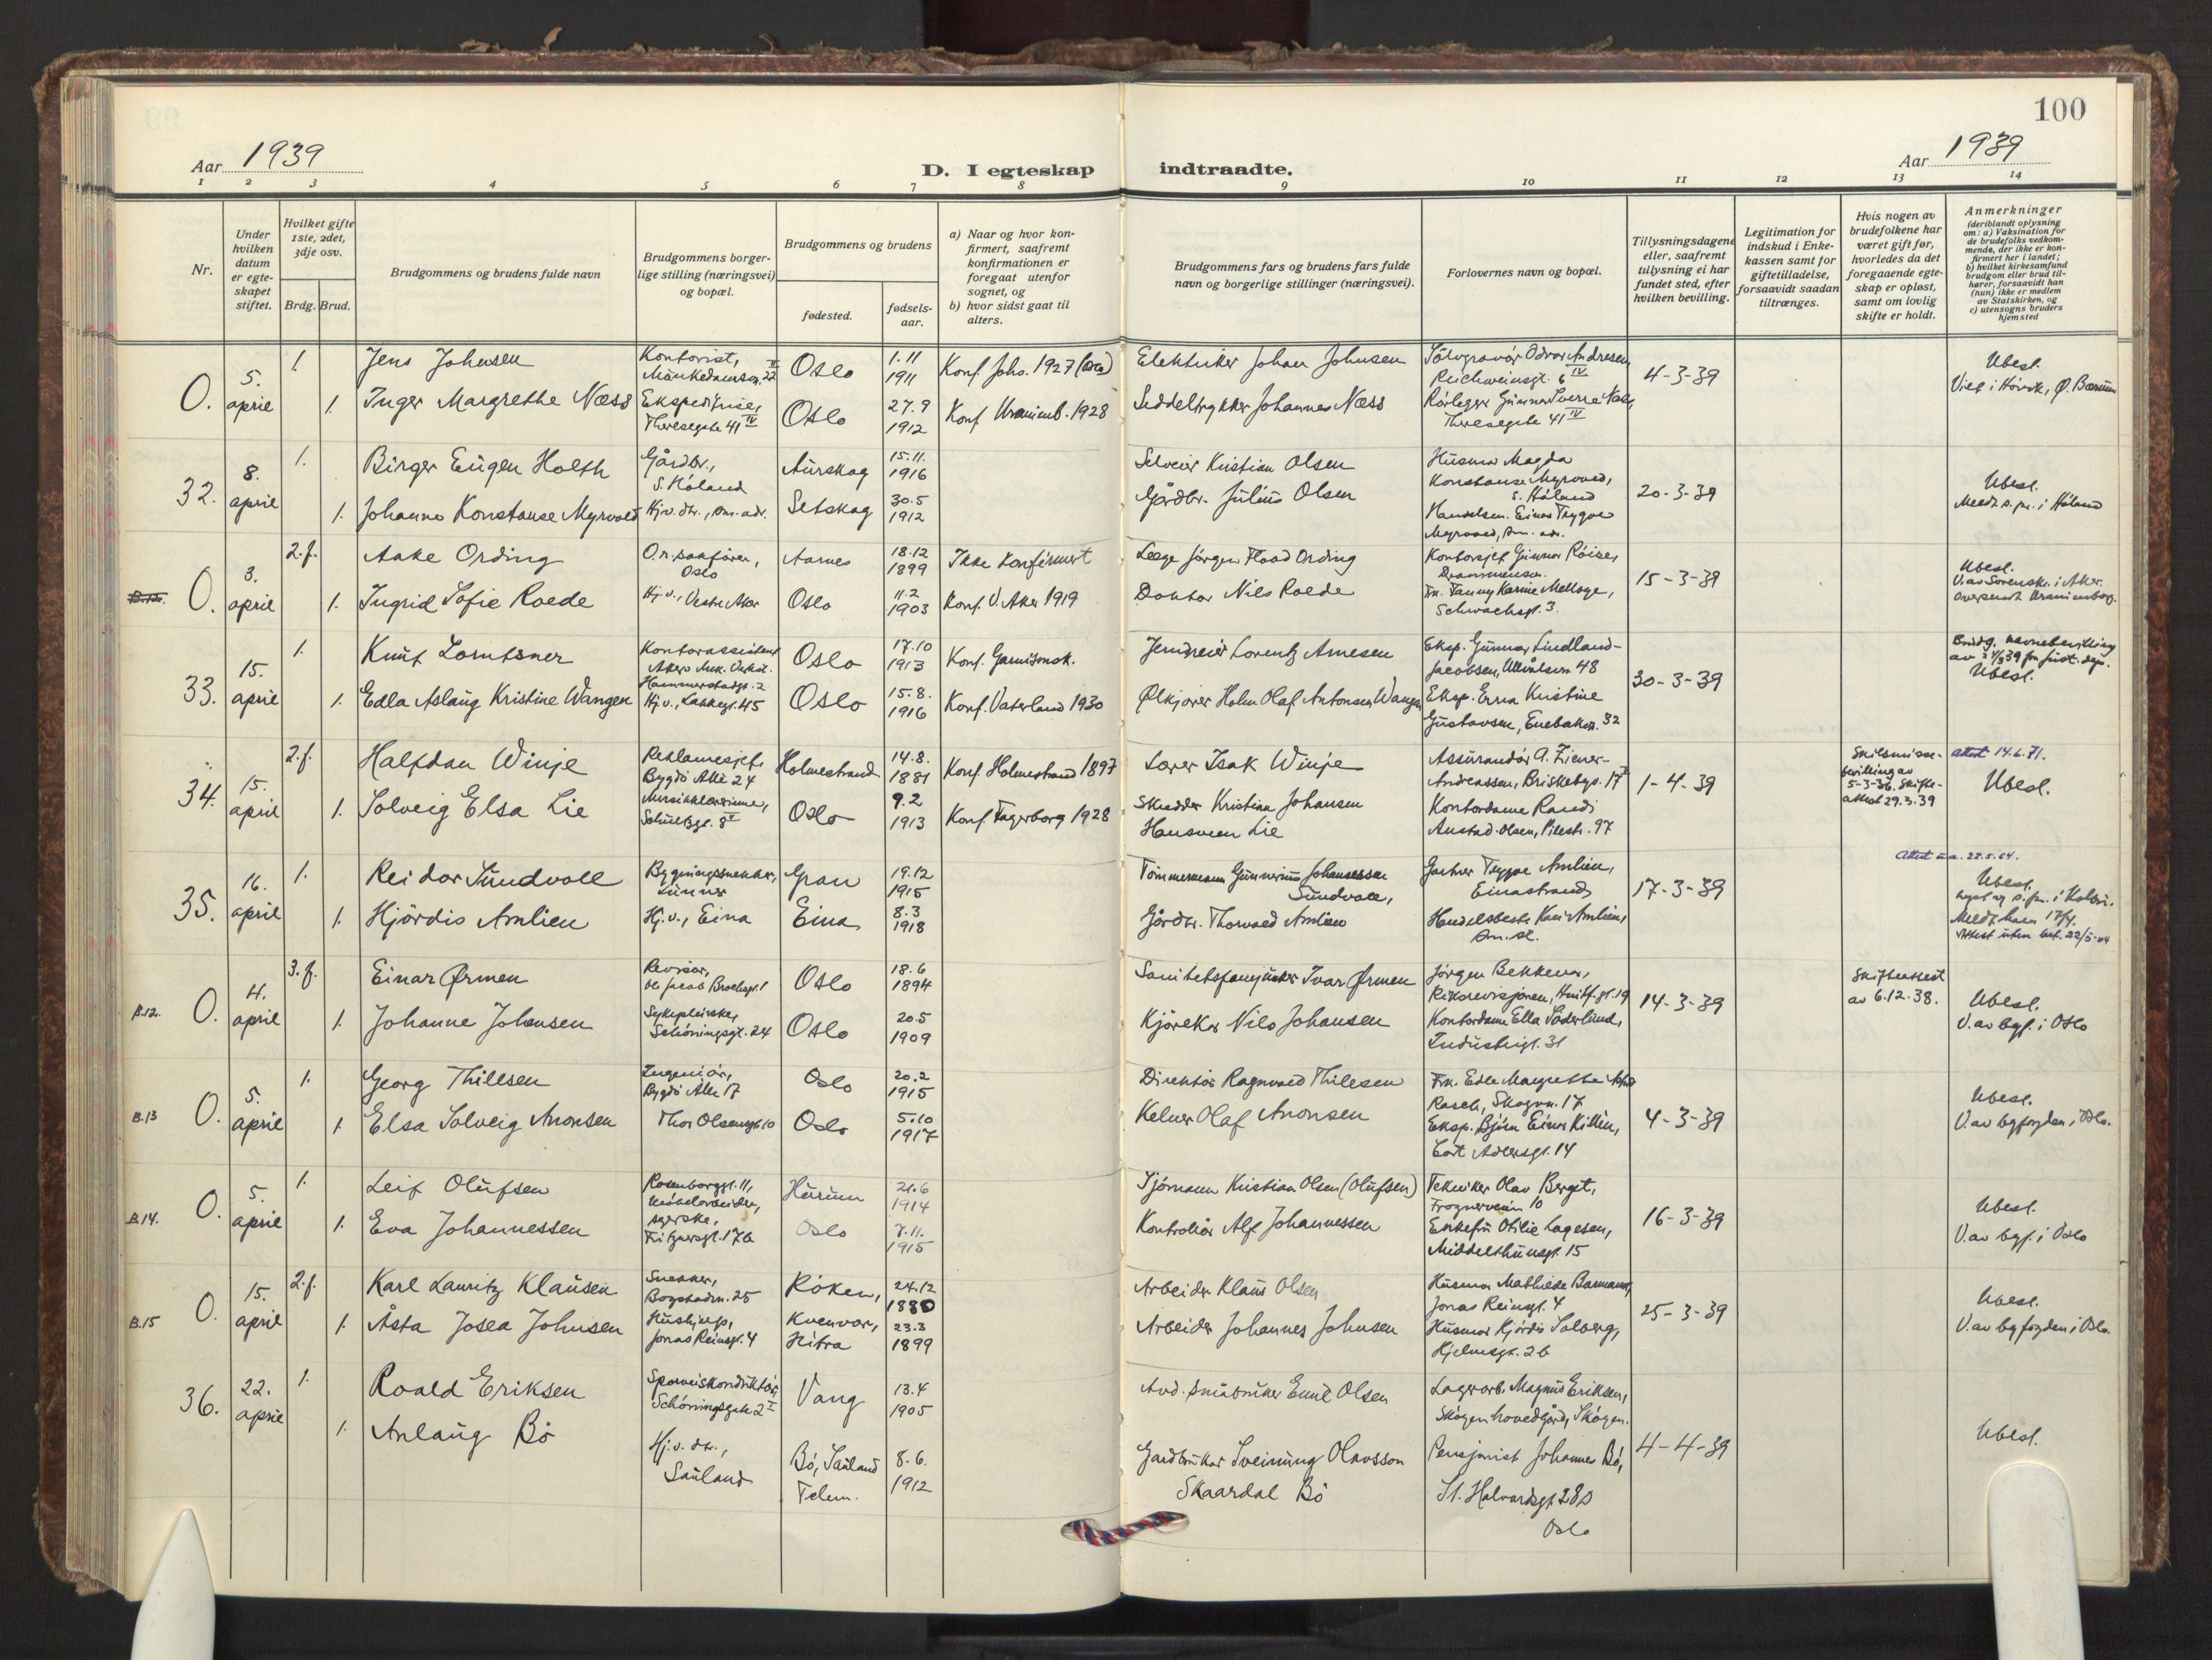 100
Aar 1939
D. I egteskap
indtraadte.
Aar 1939
1 2 3 4 5 6 7 8 9 10 11 12 13 14
Nr.
Under hvilken datum er egteskapet stiftet.
Hvilket gifte 1ste, 2det, 3dje osv.
Brdg. Brud.
Brudgommens og brudens fulde navn
Brudgommens borgerlige stilling (næringsvei) og bopæl.
Brudgommens og brudens
fødested.
fødselsaar.
a) Naar og hvor konfirmert, saafremt konfirmationen er foregaat utenfor sognet, og
b) hvor sidst gaat til alters.
Brudgommens fars og brudens fars fulde navn og borgerlige stillinger (næringsvei).
Forlovernes navn og bopæl.
Tillysningsdagene eller, saafremt tillysning ei har fundet sted, efter hvilken bevilling.
Legitimation for indskud i Enkekassen samt for giftetilladelse, forsaavidt saadan tiltrænges.
Hvis nogen av brudefolkene har været gift før, hvorledes da det foregaaende egteskap er opløst, samt om lovlig skifte er holdt.
Anmerkninger
(deriblandt oplysning om: a) Vaksination for de brudefolks vedkommende, der ikke er konfirmert her i landet; b) hvilket kirkesamfund brudgom eller brud tilhører, forsaavidt han (hun) ikke er medlem av Statskirken, og c) utensogns bruders hjemsted
O. 5. april
1. Jens Johnsen
Kontorist, Munkedamsv. 22 II
Oslo
1.11 1911
Konf. Johs. 1927
Elektriker Johan Johnsen
Sølvgravør Odvar Andresen, Reichweinsgt. 6 IV
4-3-39
Ubesl.
Viet i Høvik, Ø. Bærum
1. Inger Margrethe Næss
Ekspeditrise, Theresegate 41 IV
Oslo
27.9 1912
Konf. Uranienb. 1928
Seddeltrykker Johannes Næss
Rørlegger Gunnar Sverre Næss, Theresegate 41 IV
32. 8. april
1. Birger Eugen Holth
Gårdbr., S. Høland
Aurskog
15.11. 1916
Selveier Kristian Olsen
Husmor Magda Konstanse Myrvold, S. Høland
20-3-39
Ubesl.
Meldt s.pr. i Høland
1. Johanne Konstanse Myrvold
Hjv. dtr., sm. adr.
Setskog
30.5 1912
Gårdbr. Julius Olsen
Handelsm. Einar Trygve Myrvold, sm. adr.
B.12. O. 3. april
2.f. Aake Ording
O.r.sakfører, Oslo
Aarnes
18.12 1899
Ikke konfirmert
Læge Jørgen Flood Ording
Kontorsjef Gunnar Röise, Drammensv.
15-3-39
Ubesl.
V. av Sorenskr. i Aker.
Oversendt Uranienborg.
1. Ingrid Sofie Roede
Hj.v., Vestre Aker
Oslo
11.2 1903
Konf. V. Aker 1919
Doktor Nils Roede
Frk. Fanny Karine Mellbye, Schwachsgt. 3.
33. 15. april
1. Knut Lorntsner
Kontorassistent Akers Mek. Verkst. Hammerstadsgt. 2
Oslo
17.10 1913
Konf. Garnisonsk.
Jerndreier Lorentz Arnesen
Eksp. Gunnar Lindland-Jacobsen, Ullevålsvn 48
30-3-39
Brudg. navnebevilling
Ubesl.
1. Edla Aslaug Kristine Wangen
Hj.v., Lakkegt. 45
Oslo
15.8. 1916
Konf. Vaterland 1930
Ølkjører Holm Olaf Antonsen Wangen
Eksp. Erna Kristine Gustavsen, Enebakkv. 32
34. 15. april
2.f. Halfdan Winje
Reklamesjef, Bygdø Allé 24
Holmestrand
14.8. 1881
Konf. Holmestrand 1897
Lærer Isak Winje
Assurandør A. Ziener-Andreassen, Briskebyv. 17
1-4-39
Skilsmissebevilling av 5-3-36. Skifteattest 29.3.39
Attest 14.6.71.
Ubesl.
1. Solveig Elsa Lie
Musikklærerinne, Schultzgt. 8
Oslo
9.2 1913
Konf. Fagerborg 1928
Skredder Kristian Johansen Hansveen Lie
Kontordame Randi Anstad-Olsen, Pilestr. 97
35. 16. april
1. Reidar Sundvoll
Bygningssnekker, Lunner
Gran
19.12 1915
Tømmermann Gunnerius Johannessen Sundvoll,
Gartner Trygve Amlien, Einastrand
17-3-39
Ubesl.
Meldt ham 17/4.
Attest uten bet. 22/5-64
1. Hjördis Amlien
Hj.v., Eina
Eina
8.3 1918
Gårdbr. Thorvald Amlien
Handelsbest. Knut Amlien, sm. st.
B.12. O. 4. april
3.f. Einar Ørmen
Revisor, Ole Jacob Brochsgt. 1
Oslo
18.6 1894
Sanitetsfanejunker Ivar Ørmen
Jørgen Bekkevar, Riksrevisjonen, Huitf.gt. 19
14-3-39
Skifteattest av 6.12.38.
Ubesl.
V. av bgf. i Oslo
1. Johanne Johansen
Sykepleierske, Schöningsgt. 24
Oslo
20.5 1909
Kjørekar Nils Johansen
Kontordame Ella Söderlund, Industrigt. 31
B.13 O. 5. april
1. Georg Thillsen
Ingeniør, Bygdø Allé 17
Oslo
20.2 1915
Direktør Ragnvald Thillesen
Frk. Edle Margrethe Rasch, Skogvn. 17
4-3-39
Ubesl.
V. av byfogden i Oslo.
1. Elsa Solveig Aronsen
Thor Olsensgt. 10
Oslo
5.10 1917
Kelner Olaf Aronsen
Eksp. Bjørn Einar Killin, Cort Adlersgt. 14
B.14. O. 5. april
1. Leif Olufsen
Rosenborggt. 11, møbelarbeider,
Hurum
21.6 1914
Sjømann Kristian Olsen (Olufsen)
Tekniker Olav Berget, Frognerveien 10
16-3-39
Ubesl.
V. av bgf. i Oslo
1. Eva Johannessen
syerske, Fritznersgt. 17b
Oslo
7.11. 1915
Kontrollør Alf Johannessen
Enkefru Otilie Lagesen, Middelthunsgt. 15
B.15 O. 15. april
2.f. Karl Lauritz Klausen
Snekker, Bogstadvn. 25
Røken,
24.12 1880
Arbeider Klaus Olsen
Husmor Mathilde Barmann, Jonas Reinsgt. 4
25-3-39
Ubesl.
V. av byfogden i Oslo.
1. Åsta Josea Johnsen
Hushjelp, Jonas Reinsgt. 4
Kvenvær, Hitra
23.3 1899
Arbeider Johannes Johnsen
Husmor Hjördis Solberg, Hjelmsgt. 2b
36. 22. april
1. Roald Eriksen
Sporveiskonduktør, Schöningsgate 2 I
Vang
13.4 1905
Avd. småbruker Emil Olsen
Lagerarb. Magnus Eriksen, Skøyen hovedgård, Skøyen.
4-4-39
Ubesl.
1. Anlaug Bö
Hj.v. dtr., Sauland
Bö, Sauland Telem.
8.6. 1912
Gardbrukar Sveinung Olavsson Skaardal Bö
Pensjonist Johannes Bö, St. Halvardsgt. 28 Oslo